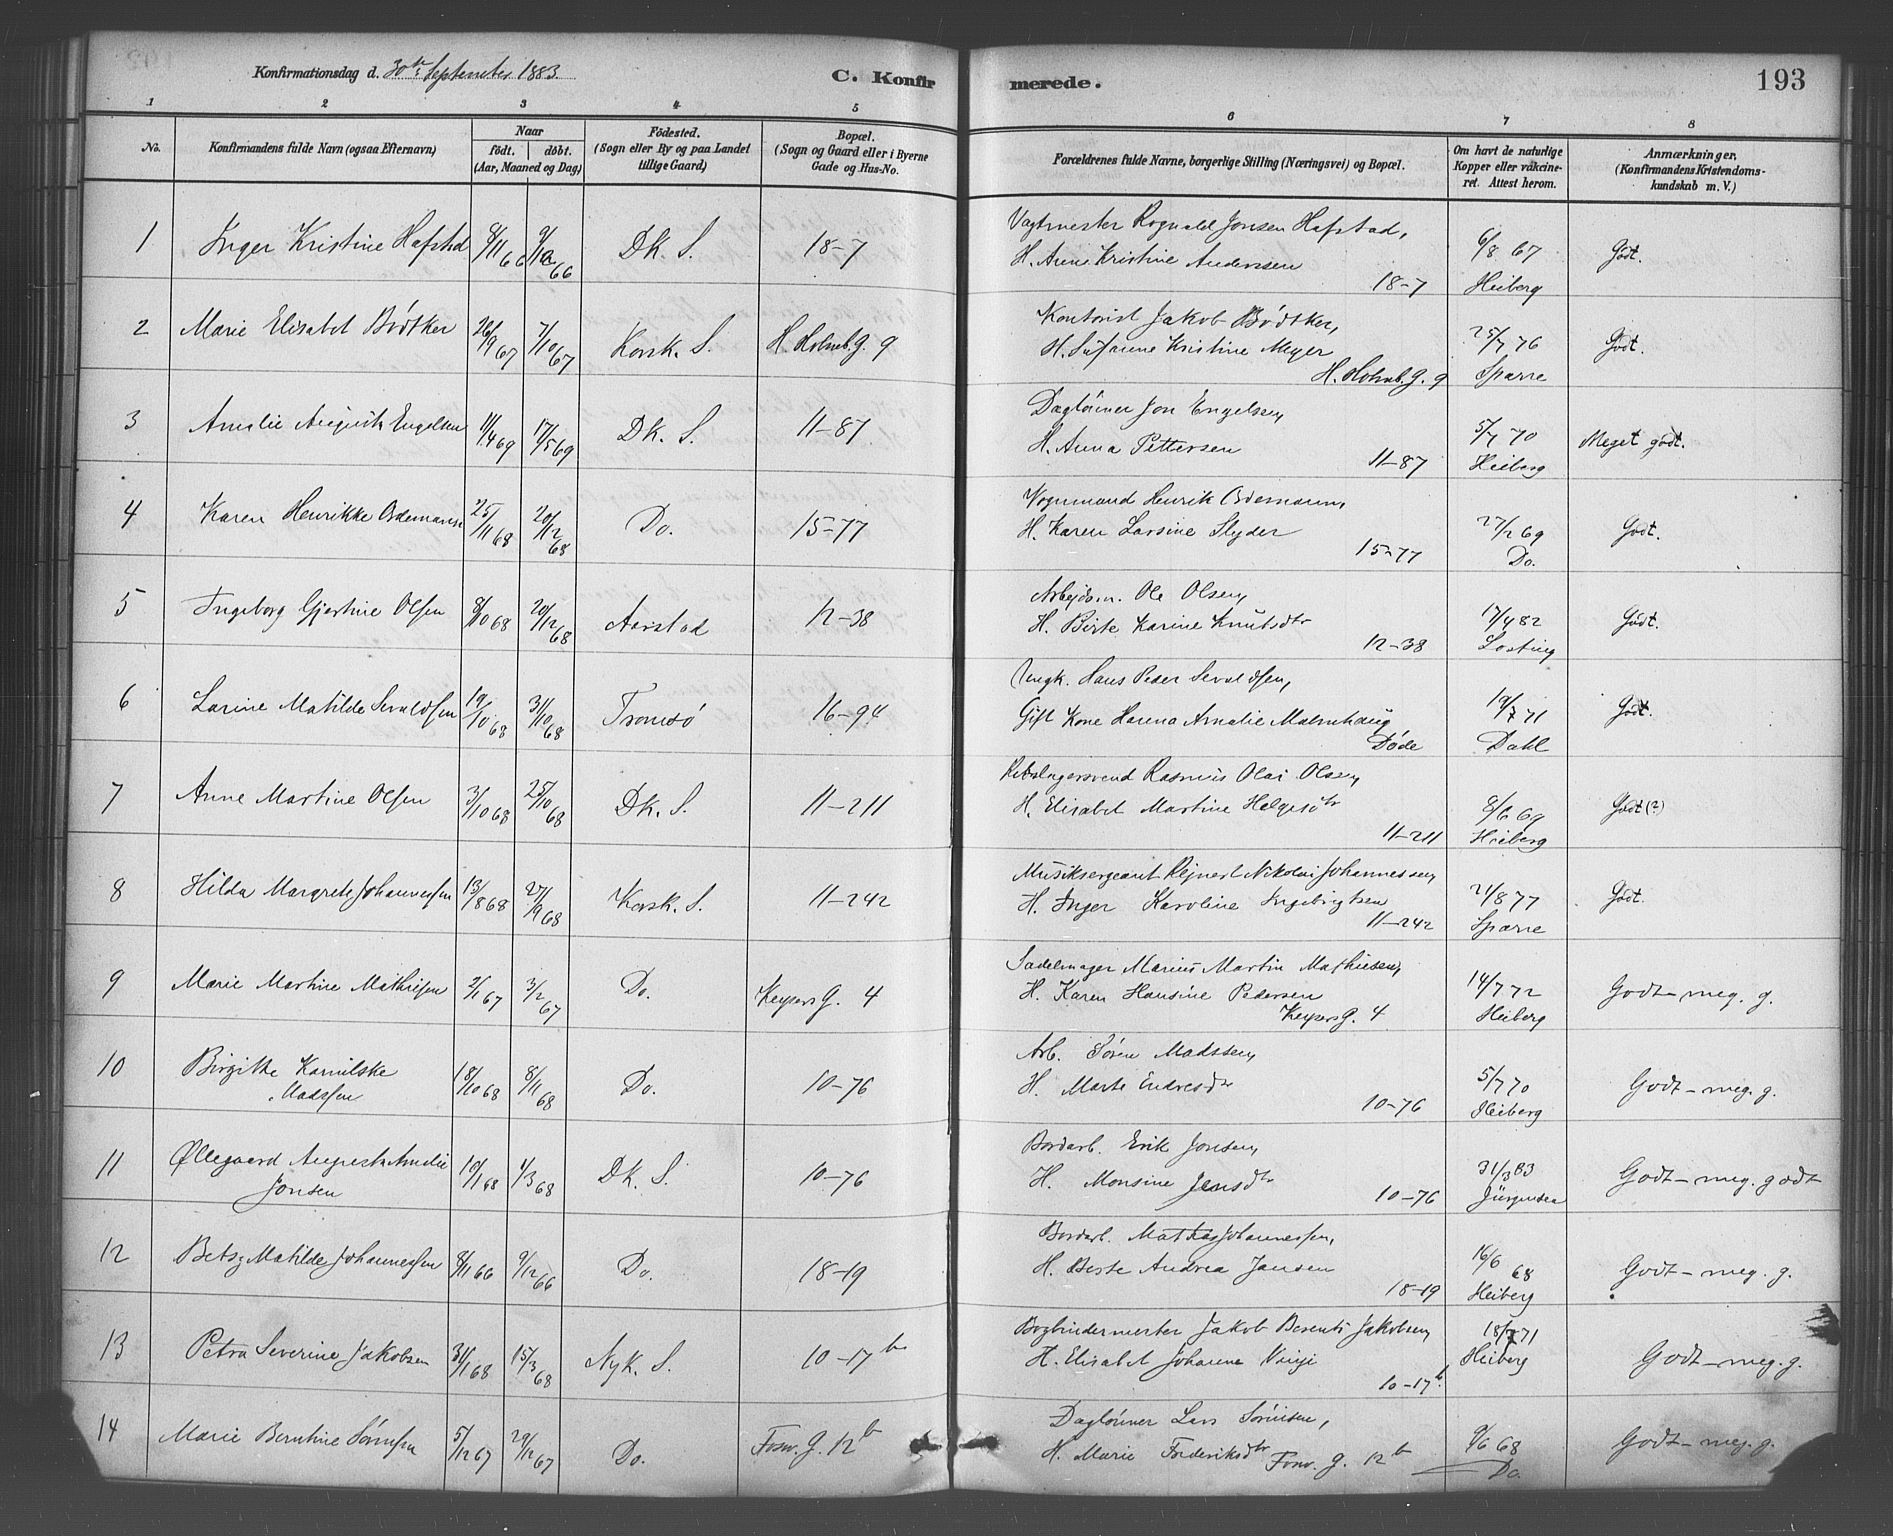 Konfirmationsdag d. 30te September 1883.
C. Konfirmerede.
193
1 2 3 4 5 6 7 8
No.
Konfirmandens fulde Navn (ogsaa Efternavn)
Naar
födt. döbt.
(Aar, Maaned og Dag)
Födested.
(Sogn eller By og paa Landet
tillige Gaard)
Bopæl.
(Sogn og Gaard eller i Byerne
Gade og Hus-No.
Forældrenes fulde Navne, borgerlige Stilling (Næringsvei) og Bopæl.
Om havt de naturlige
Kopper eller vakcine-
ret. Attest herom.
Anmærkninger,
(Konfirmandens Kristendoms-
kundskab m. V.)
1 Inger Kristine Hafstad 8/11 66 9/12 66 Dk. S. 18-7
Vagtmester Rognald Jonsen Hafstad,
H. Anne Kristine Andersen
18-7
6/8 67
Heiberg
Godt.
2 Marie Elisabet Bödtker 26/9 67 7/10 67 Korsk. S. H. Holmeb.G. 9
Kontorist Jakob Bödtker,
H. Susanne Kristine Meyer
H. Holmb. G. 9
25/7 76
Sparre
Godt.
3 Amalie Augusta Engelsen 11/4 69 17/5 69 Dk. S. 11-87
Daglönner Jon Engelsen,
H. Anna Pettersen
11-87
5/7 70
Heiberg
Meget godt.
4 Karen Henrikke Ordemann 25/11 68 20/12 68 Do. 15-77
Vognmand Henrik Ordemann,
H. Karen Larsine Slyder
15-77
27/2 69
Do.
Godt.
5 Ingeborg Gjertine Olsen 8/10 68 20/12 68 Aarstad 12-38
Arbejdsm. Ole Olsen,
H. Birte Karine Knutsdtr
12-38
17/4 82
Losting
Godt.
6 Larine Matilde Sevaldsen 19/10 68 31/10 68 Tromsö 16-94
Ungk. Hans Peder Sevaldsen,
Gift Kone Harena Amalie Malmhaug
Döde
19/7 71
Dahl
Godt.
7 Anne Martine Olsen 3/10 68 25/10 68 Dk. S. 11-211
Rebslagersvend Rasmus Olai Olsen,
H. Elisabet Martine Helgesdtr
11-211
8/6 69
Heiberg
Godt (?)
8 Hilda Margrete Johannessen 13/8 68 27/9 68 Korsk. S. 11-242
Musiksergeant Rejnert Nikolai Johannessen,
H. Inger Karoline Ingebrigtsen
11-242
21/8 77
Sparre
Godt.
9 Marie Martine Mathisen 2/1 67 3/2 67 Do. Keysers G. 4
Sadelmager Marius Martin Mathiesen,
H. Karen Hansine Pedersen
Keysers G. 4
14/7 72
Heiberg
Godt - meg. g.
10 Birgitte Kamilske
Madssen
18/10 68 8/11 68 Do. 10-76
Arb. Sören Madssen,
H. Marte Endresdtr
10-76
5/7 70
Heiberg
Godt - meg. g.
11 Øllegaard Augusta Amalie
Jonsen
10/1 68 1/3 68 Dk. S. 10-76
Bordarb. Erik Jonsen,
H. Monsine Jensdtr
10-76
31/3 83
Jürgensen
Godt - meg. godt
12 Betsy Matilde Johannessen 8/11 66 9/12 66 Do. 18-19
Bordarb. Matias Johannessen,
H. Berte Andrea Jansen
18-19
16/6 68
Heiberg
Godt - meg. g.
13 Petra Severine Jakobsen 31/1 68 15/3 68 Nyk. S. 10-17b
Bogbindermester Jakob Berents Jakobsen,
H. Elisabet Johanne Vinje
10-17b
18/7 71
Heiberg
Godt - meg. g.
14 Marie Berntine Sörensen 5/12 67 29/12 67 Do. Forsv. G. 12b
Daglönner Lars Sörensen,
H. Marie Frederiksdtr Forsv. G. 12b
9/6 68
Do.
Godt - meg. g.